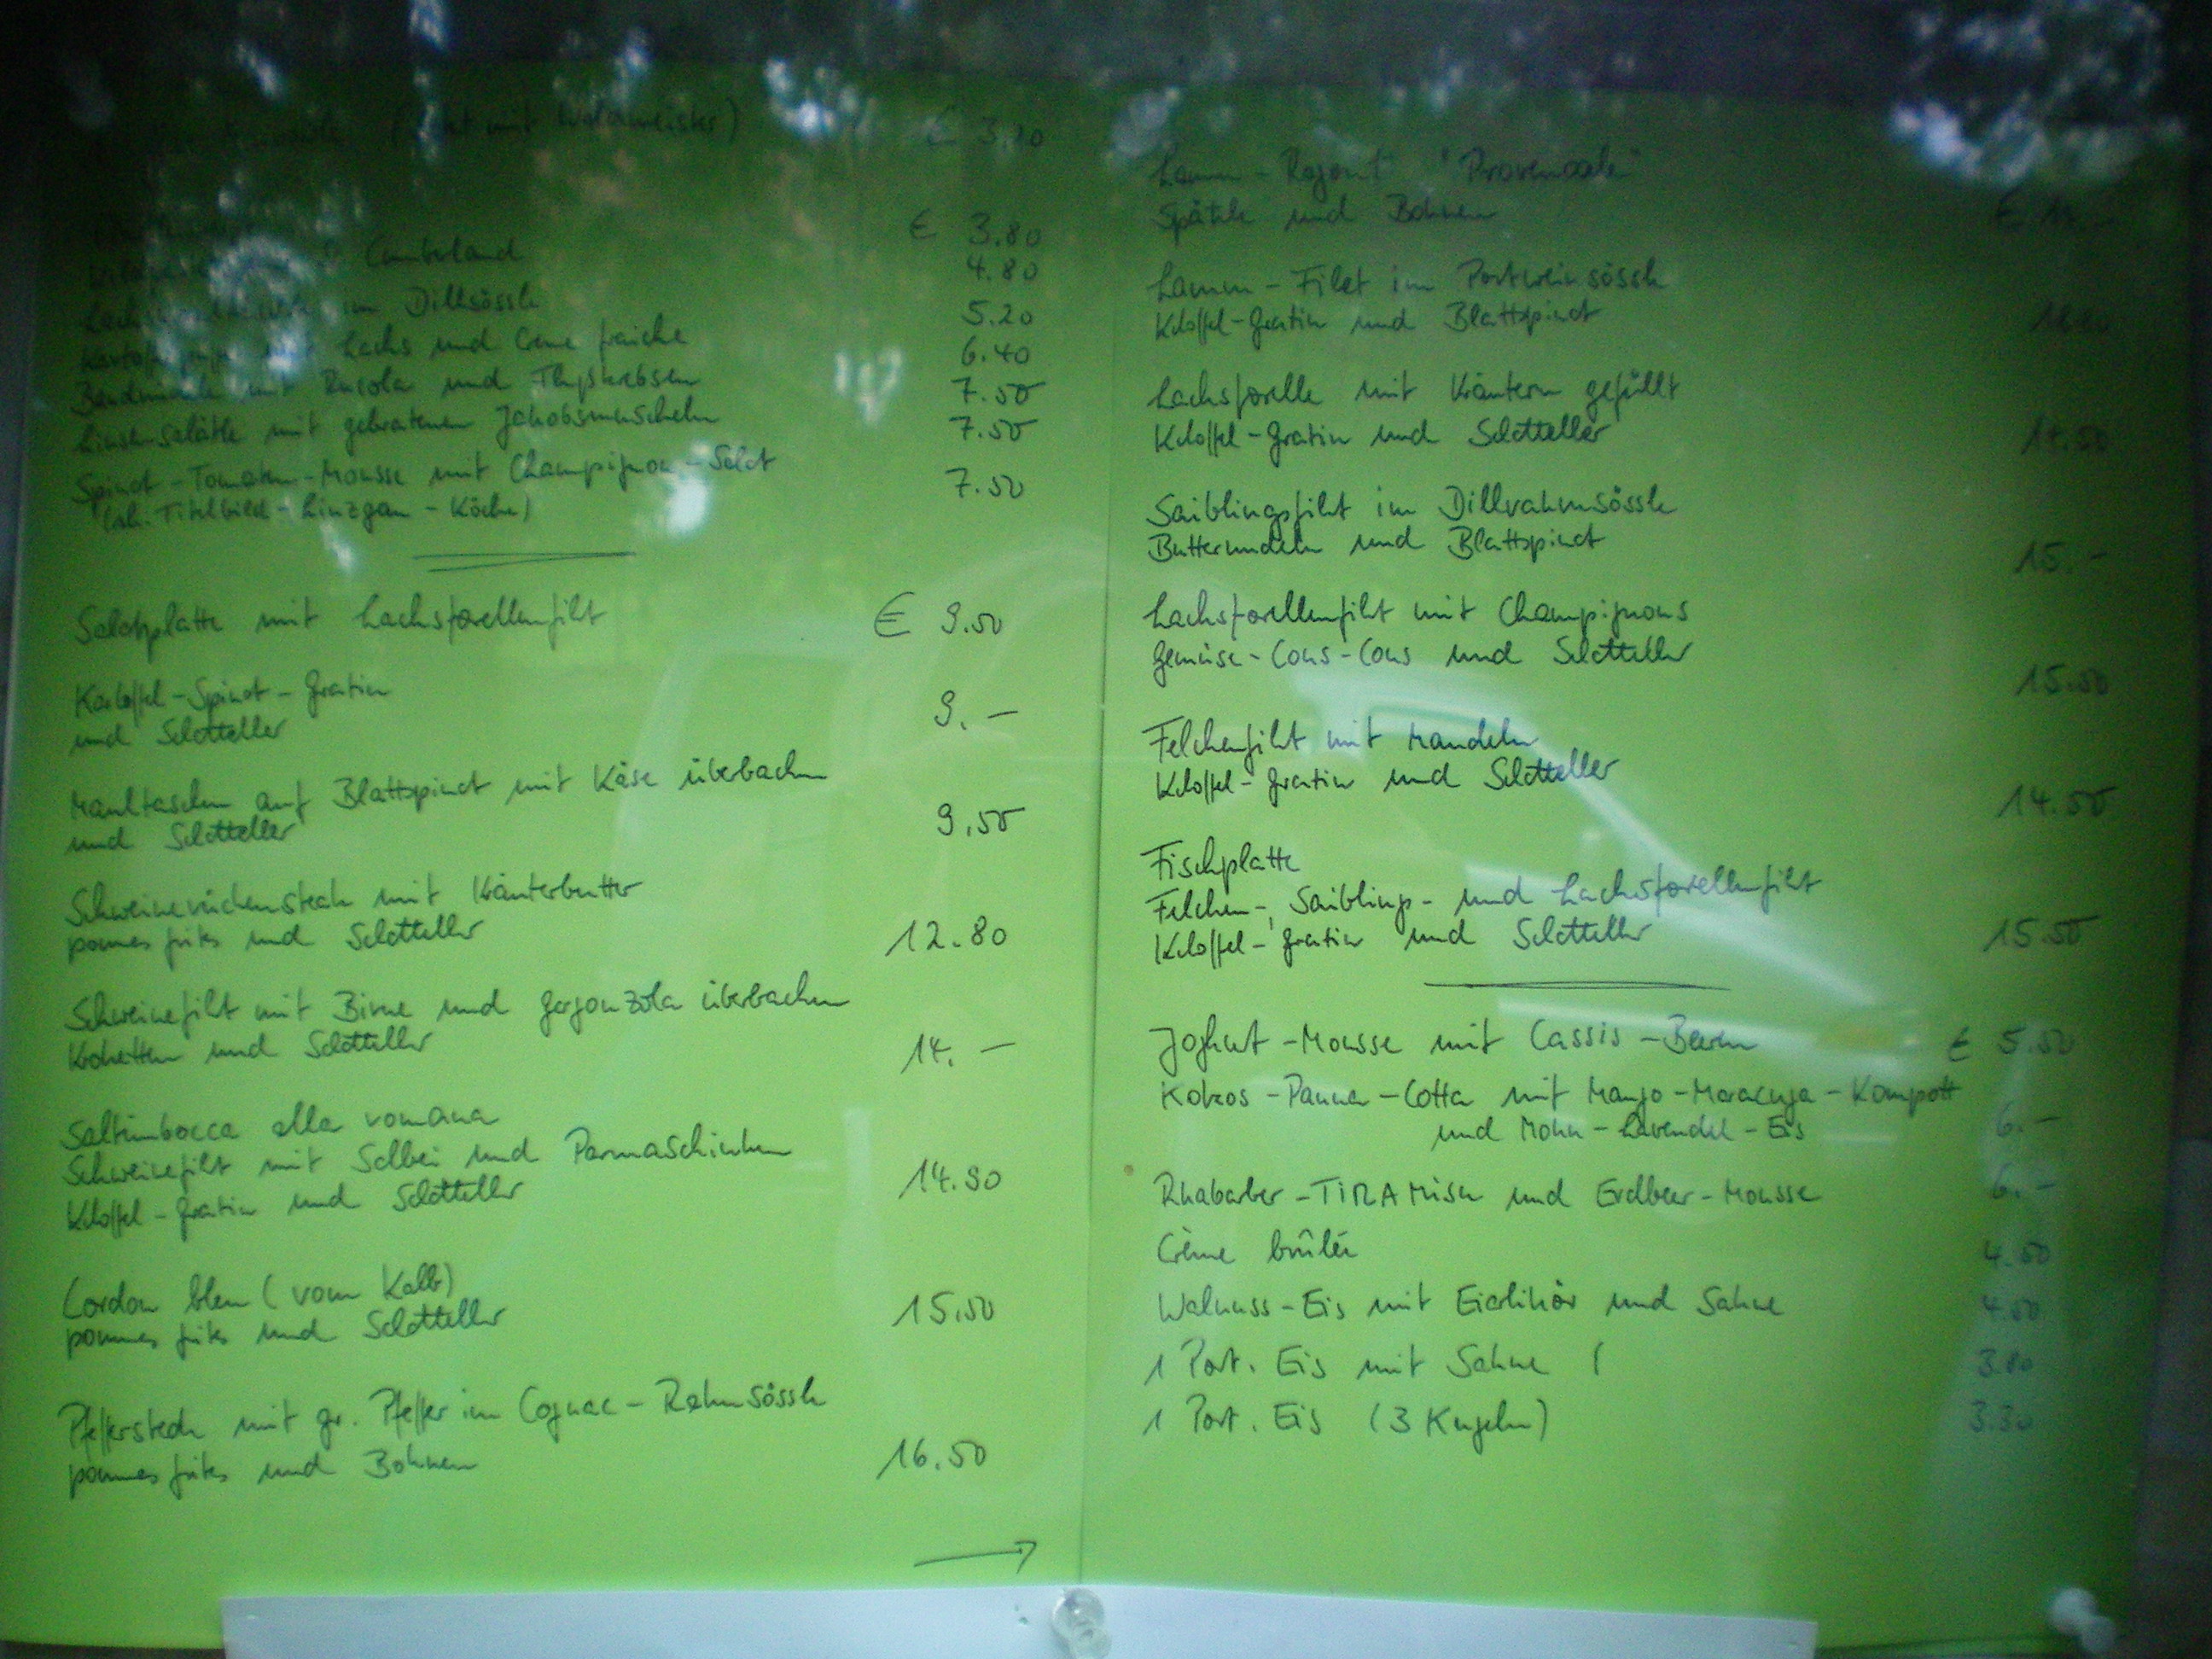 mit Waldmeister) € 3.20
€ 3.80
Cumberland 4.80
im Dillsössle 5.20
Lachs und Creme fraiche 6.40
mit Rucola und Flusskrebsen 7.50
Linsensalätle mit gebratenen Jakobsmuscheln 7.50
Spinat-Tomaten-Mousse mit Champignon-Salat 7.50
(sh. Titelbild - Linzgau - Köche)
Salatplatte mit Lachsforellenfilet € 9.50
Kartoffel-Spinat-Gratin
und Salatteller 9.-
Maultaschen auf Blattspinat mit Käse überbacken
und Salatteller 9.50
Schweinerückensteak mit Kräuterbutter
pommes frites und Salatteller 12.80
Schweinefilet mit Birne und Gorgonzola überbacken
Kroketten und Salatteller 14.-
Saltimbocca alla romana
Schweinefilet mit Salbei und Parmaschinken
Kartoffel-Gratin und Salatteller 14.90
Cordon bleu (vom Kalb)
pommes frites und Salatteller 15.50
Pfeffersteak mit gr. Pfeffer im Cognac-Rahmsössle
pommes frites und Bohnen 16.50
Lamm-Ragout "Provencale"
Spätzle und Bohnen €
Lamm-Filet im Portweinsössle
Kartoffel-Gratin und Blattspinat
Lachsforelle mit Kräutern gefüllt
Kartoffel-Gratin und Salatteller 14.50
Saiblingsfilet im Dillrahmsössle
Butternudeln und Blattspinat 15.-
Lachsforellenfilet mit Champignons
Gemüse-Cous-Cous und Salatteller 15.50
Felchenfilet mit Mandeln
Kartoffel-Gratin und Salatteller 14.50
Fischplatte
Felchen-, Saibling- und Lachsforellenfilet
Kartoffel-Gratin und Salatteller 15.50
Joghurt-Mousse mit Cassis-Beeren € 5.50
Kokos-Panna-Cotta mit Mango-Maracuja-Kompott
und Mohn-Lavendel-Eis 6.-
Rhabarber-TIRAMisu und Erdbeer-Mousse 6.-
Crème brûlée 4.50
Walnuss-Eis mit Eierlikör und Sahne 4.50
1 Port. Eis mit Sahne ( 3.80
1 Port. Eis (3 Kugeln) 3.30